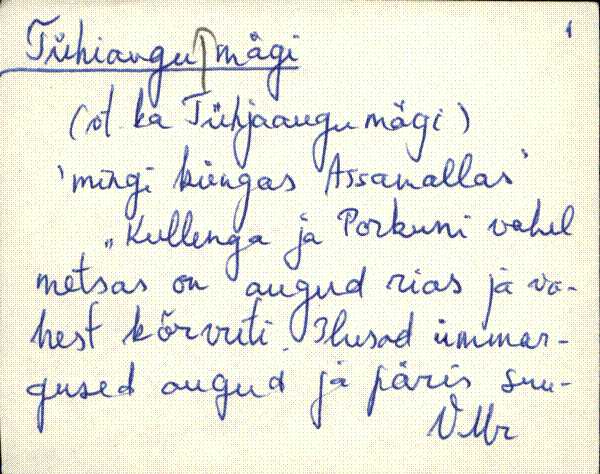 Tühiaugu mägi 1
(vt ka Tühjaaugu mägi)
'mingi küngas Assamallas'
„Kullenga ja Porkuni vahel
metsas on augud rias ja va-
hest kõrvuti. Ilusad ümmar-
gused augud ja päris suu-
VMr